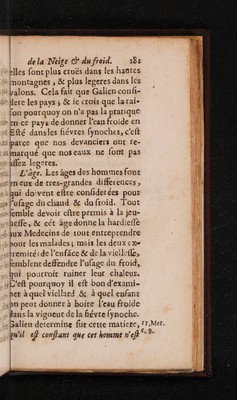 de la Neige & du froid. 181
elles sont plus cruës dans les hautes
montagnes, & plus legeres dans les
valons. Cela fait que Galien consi-
dere les pays, & ie crois que la rai-
son pourquoy on n'a pas la pratique
en ce pays de donner l'eau froide en
Esté dans les fiévres synoches, c'est
parce que nos devanciers ont re-
marqué que nos eaux ne sont pas
assez legeres.
L'âge. Les âges des hommes sont
en eux de tres-grandes differences,
qui doivent estre considerées pour
l'usage du chaud & du froid. Tout
semble devoir estre permis à la jeu-
nesse, & cét âge donne la hardiesse
aux Medecins de tout entreprendre
pour les malades; mais les deux ex-
tremités de l'enfãce & de la vieillesse,
semblent deffendre l'usage du froid,
qui pourroit ruiner leur chaleur.
C'est pourquoy il est bon d'exami-
ner à quel viellard & à quel enfant
on peut donner à boire l'eau froide
dans la vigueur de la fiévre synoche.
Galien determine sur cette matiere, 11. Met.
qu'il est constant que cet homme n'est c. 9.